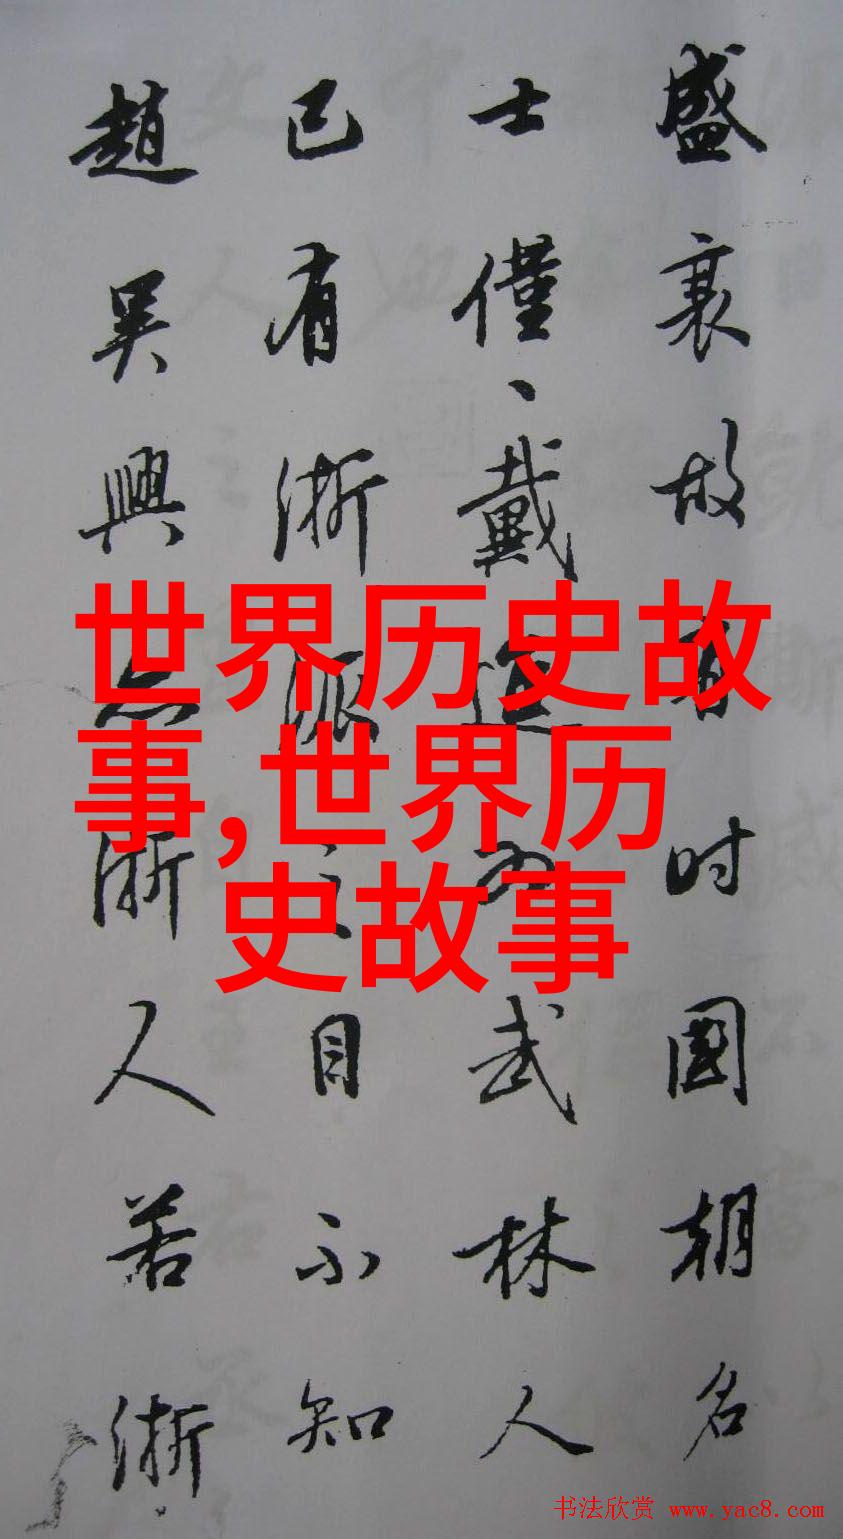 盛衰故有时國朝名
士僅、戴進為武林人
已有浙派之目不知
趙吴興亦浙人若浙
世界历史故
事,世界历
史故事
书法欣赏 www.yac8.com